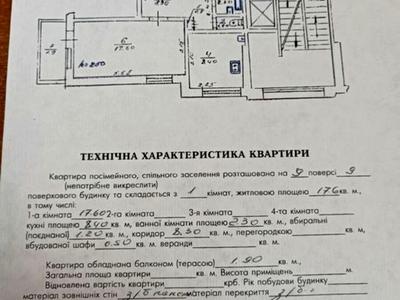 6
17.60
4
8.40
2.25
ТЕХНІЧНА ХАРАКТЕРИСТИКА КВАРТИРИ
Квартира посімейного, спільного заселення розташована на 9 поверсі 9
(непотрібне викреслити)
поверхового будинку та складається з 1 кімнат, житловою площею 17.6 кв. м,
в тому числі:
1-а кімната 17.60 2-га кімната 3-я кімната 4-та кімната
кухні площею 8.40 кв. м, ванної кімнати площею 2.30 кв. м, вбиральні
(поєднаної) 1.20 кв. м, коридор 8.30 кв. м, перегородкою кв. м,
вбудованої шафи 0.50 кв. м веранди кв. м.
Квартира обладнана балконом (терасою) 1.90 кв. м.
Загальна площа квартири кв. м. Висота приміщень м.
Відновлена вартість квартири крб. Рік побудови будинку
матеріал зовнішніх стін з/б матеріал перекриття з/б